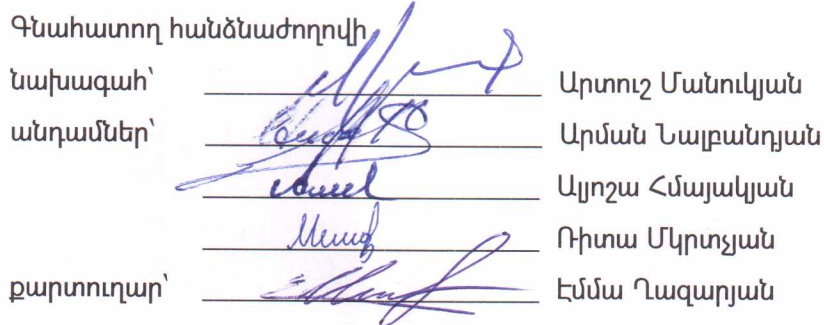 Գնահատող հանձնաժողովի
նախագահ՝ Արտուշ Մանուկյան
անդամներ՝ Արման Նալբանդյան
Ալյոշա Հմայակյան
Ռիտա Մկրտչյան
քարտուղար՝ Էմմա Ղազարյան